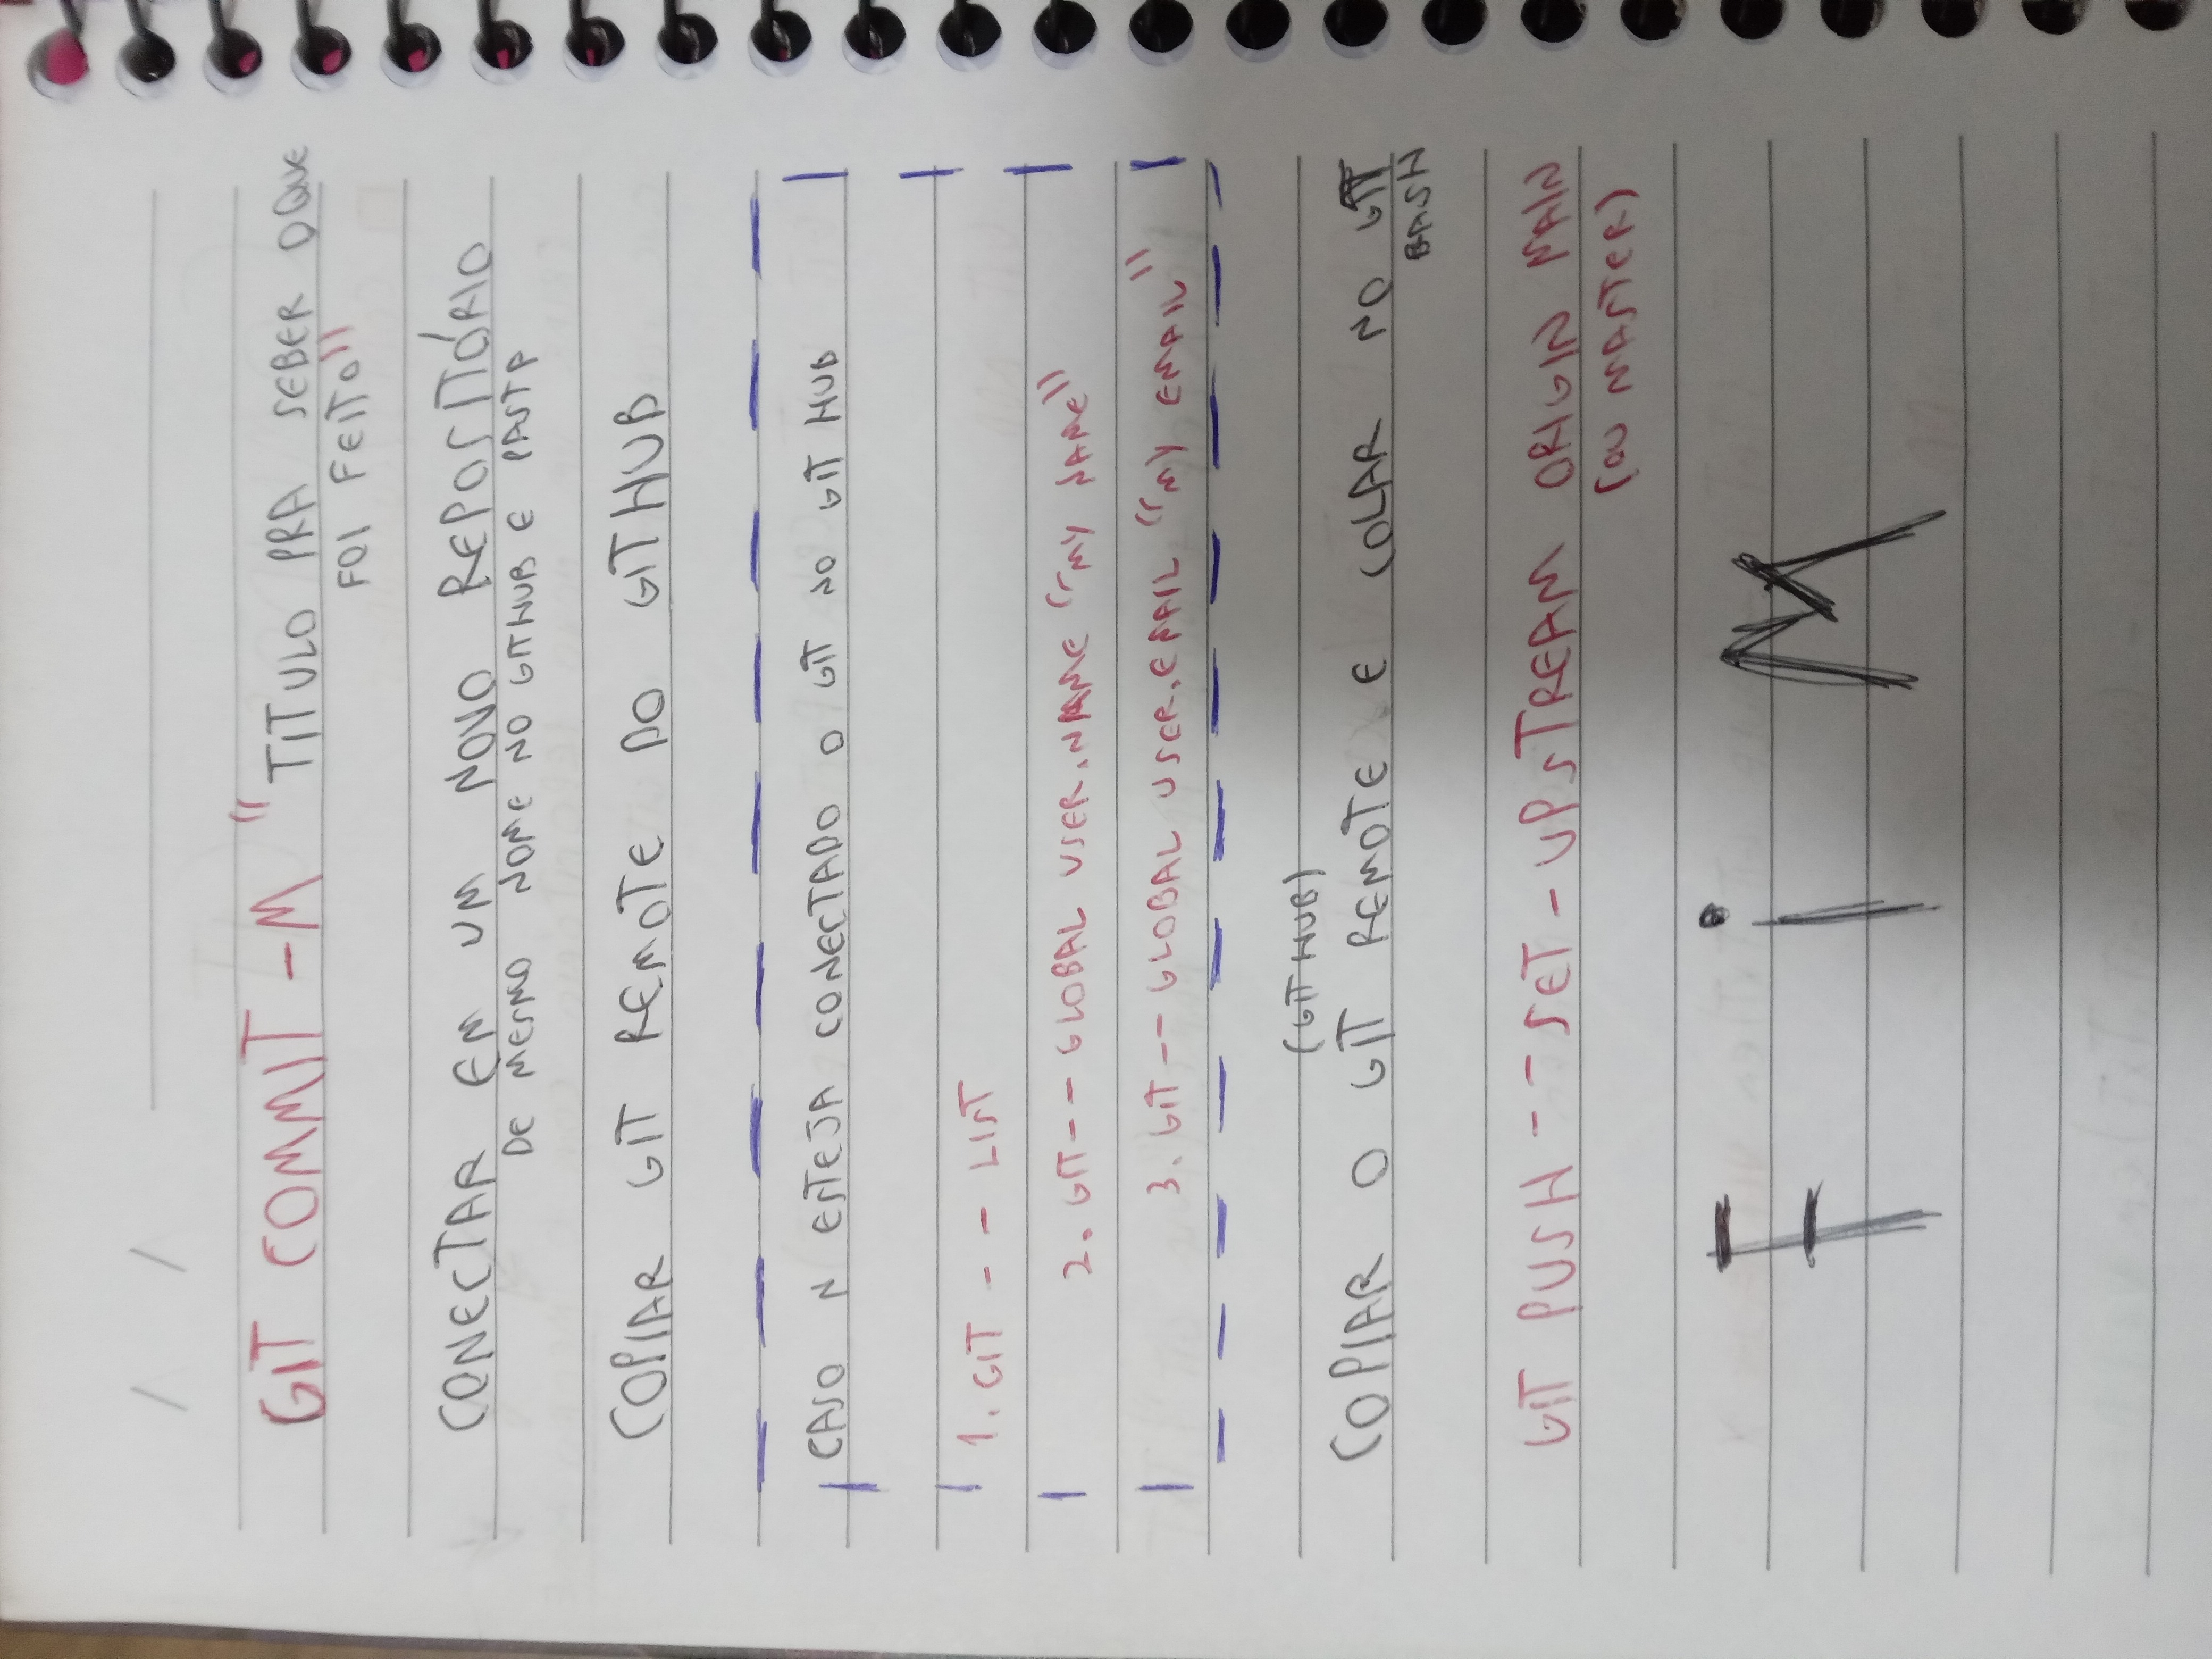 / /
GIT COMMIT -M "TITULO PRA SEBER OQUE
FOI FEITO"
CONECTAR EM UM NOVO REPOSITÓRIO
DE MESMO NOME NO GITHUB E PASTA
COPIAR GIT REMOTE DO GITHUB
CASO N ESTEJA CONECTADO O GIT NO GIT HUB
1. GIT -- LIST
2. GIT -- GLOBAL USER.NAME "MY NAME"
3. GIT -- GLOBAL USER.EMAIL "MY EMAIL"
(GIT HUB)
COPIAR O GIT REMOTE E COLAR NO GIT
BASH
GIT PUSH --SET-UPSTREAM ORIGIN MAIN
(OU MASTER)
FiM